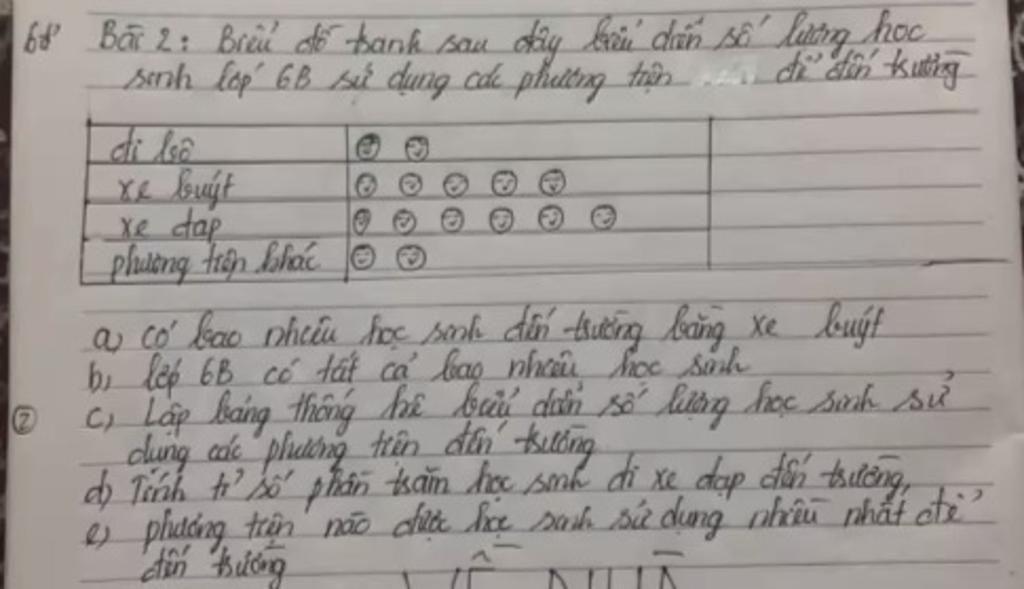 Bài 2: Biểu đồ tranh sau đây biểu diễn số lượng học
sinh lớp 6B sử dụng các phương tiện để đến trường
đi bộ
xe buýt
xe đạp
phương tiện khác
a) có bao nhiêu học sinh đến trường bằng xe buýt
b) lớp 6B có tất cả bao nhiêu học sinh
② c) Lập bảng thống kê biểu diễn số lượng học sinh sử
dụng các phương tiện đến trường
d) Tính tỉ số phần trăm học sinh đi xe đạp đến trường,
e) phương tiện nào được học sinh sử dụng nhiều nhất để
đến trường